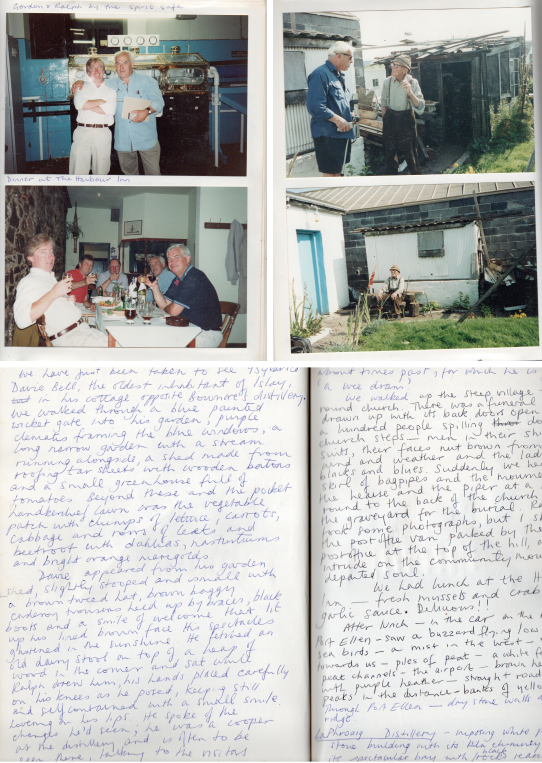 Gordon & Ralph by the spirit safe
Dinner at The Harbour Inn
We have just been taken to see 75 year old
Davie Bell, the oldest inhabitant of Islay,
in his cottage opposite Bowmore distillery.
We walked through a blue painted
wicket gate into his garden, purple
clematis framing the blue windows, a
long narrow garden with a stream
running alongside, a shed made from
roofing tar sheets with wooden battons
and a small greenhouse full of
tomatoes. Beyond these and the pocket
handkerchief lawn was the vegetable
patch with clumps of lettuce, carrots,
cabbage and rows of leeks and
beetroot with dahlias, nasturtiums
and bright orange marigolds
Davie appeared from his garden
shed, slightly stooped and small with
a brown tweed hat, brown baggy
corduroy trousers held up by braces, black
boots and a smile of welcome that lit
up his lined brown face, his spectacles
glistened in the sunshine. He fetched an
old dairy stool on top of a heap of
wood in the corner and sat while
Ralph drew him, his hands placed carefully
on his knees as he posed, keeping still
and self contained with a small smile
hovering on his lips. He spoke of the
changes he'd seen; he was a cooper
at the distillery and is often to be
seen there, talking to the visitors
about times past, for which he is
'a wee dram'.
We walked up the steep village
round church. There was a funeral
drawn up with its back doors open
a hundred people spilling
church steps — men in their
suits, their faces nut brown from
and weather and the
blacks and blues. Suddenly we
skirl of bagpipes and the mourners
the hearse and the piper at
round to the back of the church
the graveyard for the burial.
took some photographs, but I
a post office van parked by the
post office at the top of the hill,
intrude on the community
departed soul.
We had lunch at the
Inn — fresh mussels and crab
garlic sauce. Delicious!!
After lunch — in the car on the
Port Ellen — saw a buzzard flying low
sea birds — a mist in the west —
towards us — piles of peat — a white
peat channels — the airport — brown
with purple heather — straight road
peaks in the distance — banks of yellow
Through Port Ellen — dry stone walls
ridge.
Laphroaig Distillery — imposing white
stone building with its kiln chimneys
its spectacular bay with black rocks